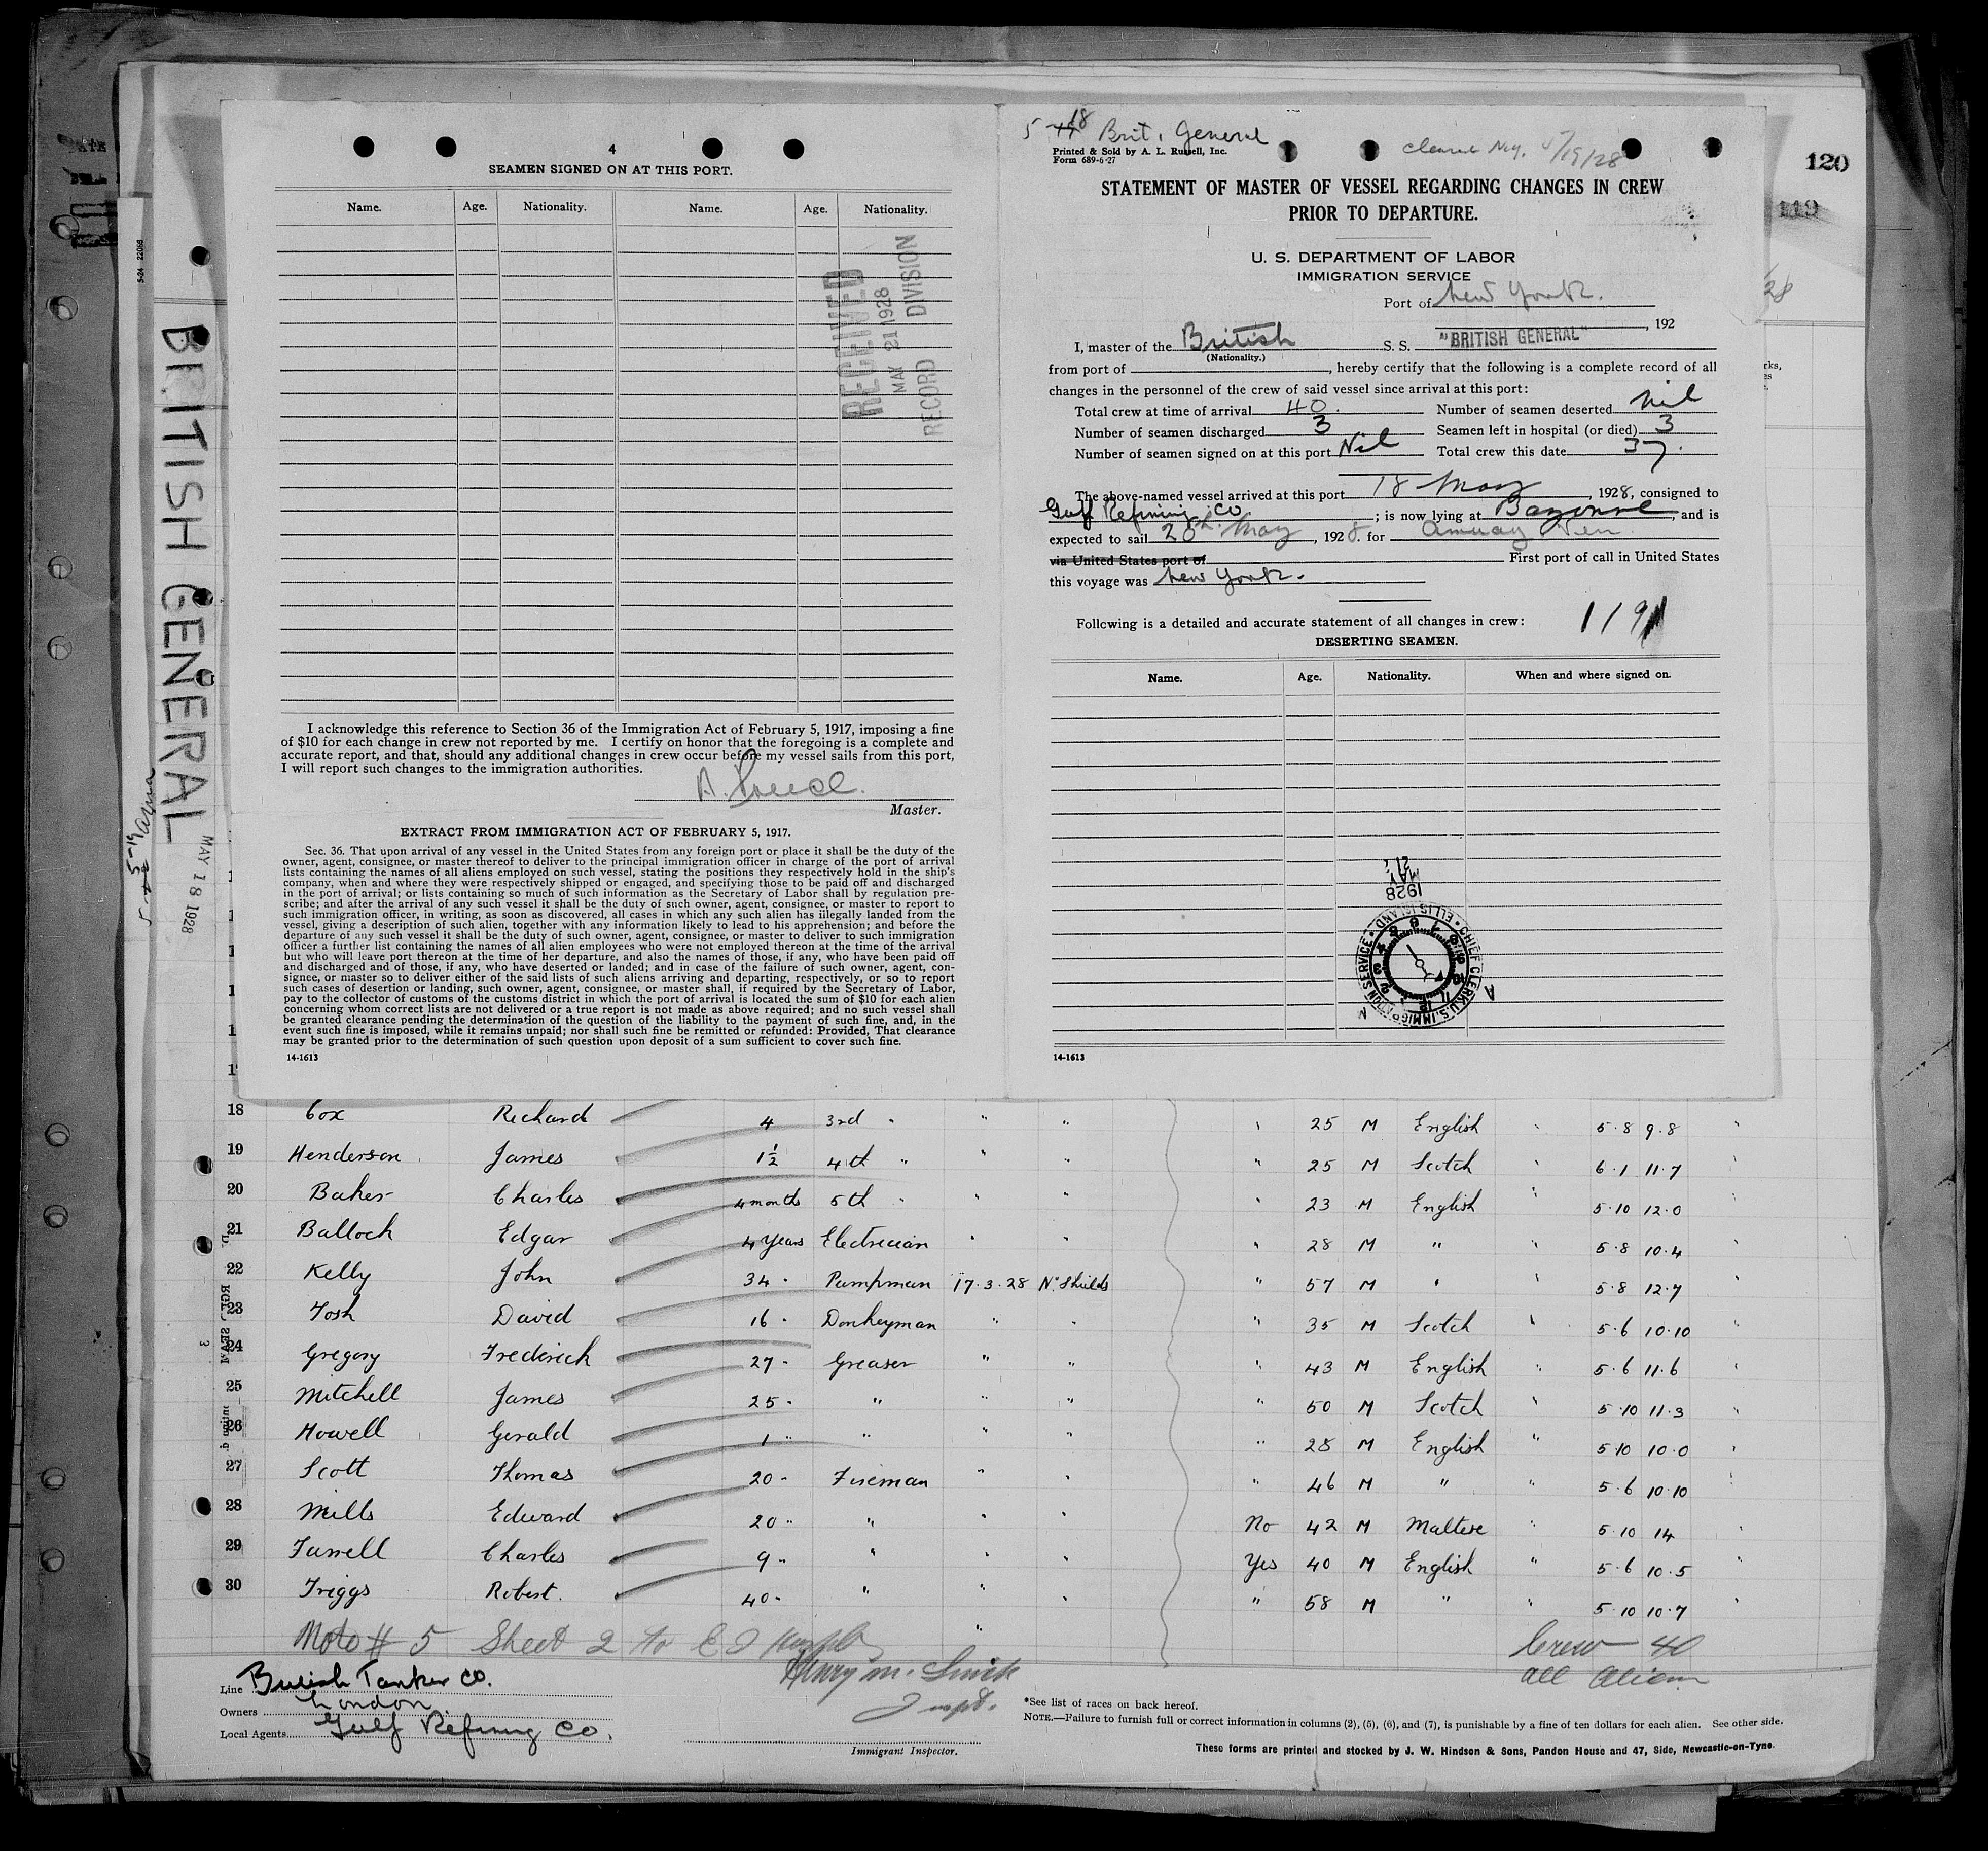 4
SEAMEN SIGNED ON AT THIS PORT.
Name. Age. Nationality. Name. Age. Nationality.
RECEIVED
MAY 21 1928
RECORD DIVISION
I acknowledge this reference to Section 36 of the Immigration Act of February 5, 1917, imposing a fine
of $10 for each change in crew not reported by me. I certify on honor that the foregoing is a complete and
accurate report, and that, should any additional changes in crew occur before my vessel sails from this port,
I will report such changes to the immigration authorities.
Master.
EXTRACT FROM IMMIGRATION ACT OF FEBRUARY 5, 1917.
Sec. 36. That upon arrival of any vessel in the United States from any foreign port or place it shall be the duty of the
owner, agent, consignee, or master thereof to deliver to the principal immigration officer in charge of the port of arrival
lists containing the names of all aliens employed on such vessel, stating the positions they respectively hold in the ship's
company, when and where they were respectively shipped or engaged, and specifying those to be paid off and discharged
in the port of arrival; or lists containing so much of such information as the Secretary of Labor shall by regulation pre-
scribe; and after the arrival of any such vessel it shall be the duty of such owner, agent, consignee, or master to report to
such immigration officer, in writing, as soon as discovered, all cases in which any such alien has illegally landed from the
vessel, giving a description of such alien, together with any information likely to lead to his apprehension; and before the
departure of any such vessel it shall be the duty of such owner, agent, consignee, or master to deliver to such immigration
officer a further list containing the names of all alien employees who were not employed thereon at the time of the arrival
but who will leave port thereon at the time of her departure, and also the names of those, if any, who have been paid off
and discharged and of those, if any, who have deserted or landed; and in case of the failure of such owner, agent, con-
signee, or master so to deliver either of the said lists of such aliens arriving and departing, respectively, or so to report
such cases of desertion or landing, such owner, agent, consignee, or master shall, if required by the Secretary of Labor,
pay to the collector of customs of the customs district in which the port of arrival is located the sum of $10 for each alien
concerning whom correct lists are not delivered or a true report is not made as above required; and no such vessel shall
be granted clearance pending the determination of the question of the liability to the payment of such fine, and, in the
event such fine is imposed, while it remains unpaid; nor shall such fine be remitted or refunded: Provided, That clearance
may be granted prior to the determination of such question upon deposit of a sum sufficient to cover such fine.
14-1613
5-18 Brit. General
Printed & Sold by A. L. Russell, Inc.
Form 689-6-27
5/19/28
120
119
STATEMENT OF MASTER OF VESSEL REGARDING CHANGES IN CREW
PRIOR TO DEPARTURE.
U. S. DEPARTMENT OF LABOR
IMMIGRATION SERVICE
Port of New York.
, 192
I, master of the British S. S. "BRITISH GENERAL"
(Nationality.)
from port of , hereby certify that the following is a complete record of all
changes in the personnel of the crew of said vessel since arrival at this port:
Total crew at time of arrival 40. Number of seamen deserted nil
Number of seamen discharged 3 Seamen left in hospital (or died) 3
Number of seamen signed on at this port Nil Total crew this date 37.
The above-named vessel arrived at this port 18 May, 1928, consigned to
Gulf Refining Co.; is now lying at Bayonne, and is
expected to sail 20th May, 1928. for Amuay Ven
via United States port of First port of call in United States
this voyage was New York.
Following is a detailed and accurate statement of all changes in crew: 119
DESERTING SEAMEN.
Name. Age. Nationality. When and where signed on.
MAY 21, 1928
CHIEF CLERK U.S. IMMIGRATION SERVICE ELLIS ISLAND
14-1613
BRITISH GENERAL
MAY 18 1928
5-24 22088
18 Cox Richard 4 3rd " " " " 25 M English " 5·8 9·8 "
19 Henderson James 1½ 4th " " " " 25 M Scotch " 6·1 11·7 "
20 Baker Charles 4 months 5th " " " " 23 M English " 5·10 12·0 "
21 Balloch Edgar 4 years Electrician " " " 28 M " " 5·8 10·4 "
22 Kelly John 34 " Pumpman 17·3·28 N. Shields " 57 M " 5·8 12·7
23 Tosh David 16 " Donkeyman " " " 35 M Scotch " 5·6 10·10 "
24 Gregory Frederick 27 " Greaser " " " 43 M English " 5·6 11·6 "
25 Mitchell James 25 " " " " " 50 M Scotch " 5·10 11·3 "
26 Howell Gerald 1 " " " " " 28 M English " 5·10 10·0 "
27 Scott Thomas 20 " Fireman " " " 46 M " " 5·6 10·10
28 Mills Edward 20 " " " " No 42 M Maltese " 5·10 14 "
29 Farrell Charles 9 " " " " Yes 40 M English " 5·6 10·5 "
30 Triggs Robert. 40 " " " " " 58 M " " 5·10 10·7 "
Note # 5 Sheet 2 to
Crew 40
all Aliens
Line British Tanker Co.
Owners London
Local Agents Gulf Refining Co.
Inspt.
Immigrant Inspector.
*See list of races on back hereof.
NOTE.—Failure to furnish full or correct information in columns (2), (5), (6), and (7), is punishable by a fine of ten dollars for each alien. See other side.
These forms are printed and stocked by J. W. Hindson & Sons, Pandon House and 47, Side, Newcastle-on-Tyne.